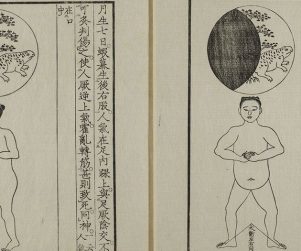 月生七日蝦蟇生後右股人氣在足内踝上與足厥陰交不
可灸判傷之使人厥逆上氣霍亂轉筋甚則致死同神人